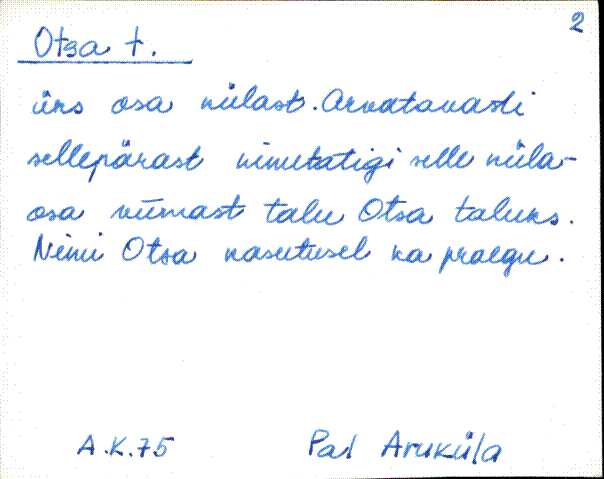 2
Otsa t.
üks osa külast. Arvatavasti
sellepärast nimetatigi selle küla-
osa viimast talu Otsa taluks.
Nimi Otsa kasutusel ka praegu.
A.K.75 Pal Aruküla